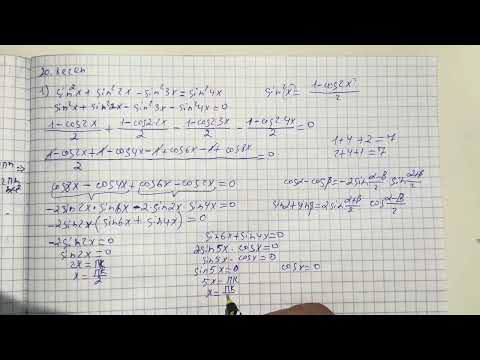 1) sin²x + sin²2x - sin²3x = sin²4x
sin²x = (1-cos2x)/2
sin²x + sin²2x - sin²3x - sin²4x = 0
(1-cos2x)/2 + (1-cos2·2x)/2 - (1-cos2·3x)/2 - (1-cos2·4x)/2 = 0
1+4+2=7
2+4+1=7
(1-cos2x+1-cos4x-1+cos6x-1+cos8x)/2 = 0
cos8x - cos4x + cos6x - cos2x = 0
cosα - cosβ = -2sin (α+β)/2 · sin (α-β)/2
-2sin2x · sin6x - 2sin2x sin4x = 0
sinα + sinβ = 2sin (α+β)/2 cos (α-β)/2
-2sin2x · (sin6x + sin4x) = 0
-2sin2x = 0
sin6x + sin4x = 0
sin2x = 0
2sin5x · cosx = 0
2x = πk
sin5x · cosx = 0
x = πk/2
sin5x = 0
cosx = 0
5x = πk
x = πk